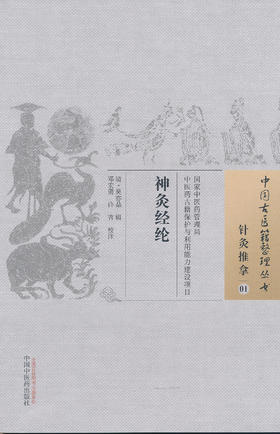 中国古医籍整理丛书
针灸推拿
01
国家中医药管理局
中医药古籍保护与利用能力建设项目
神灸经纶
清·吴亦鼎 辑
邓宏勇 许吉 校注
中国中医药出版社